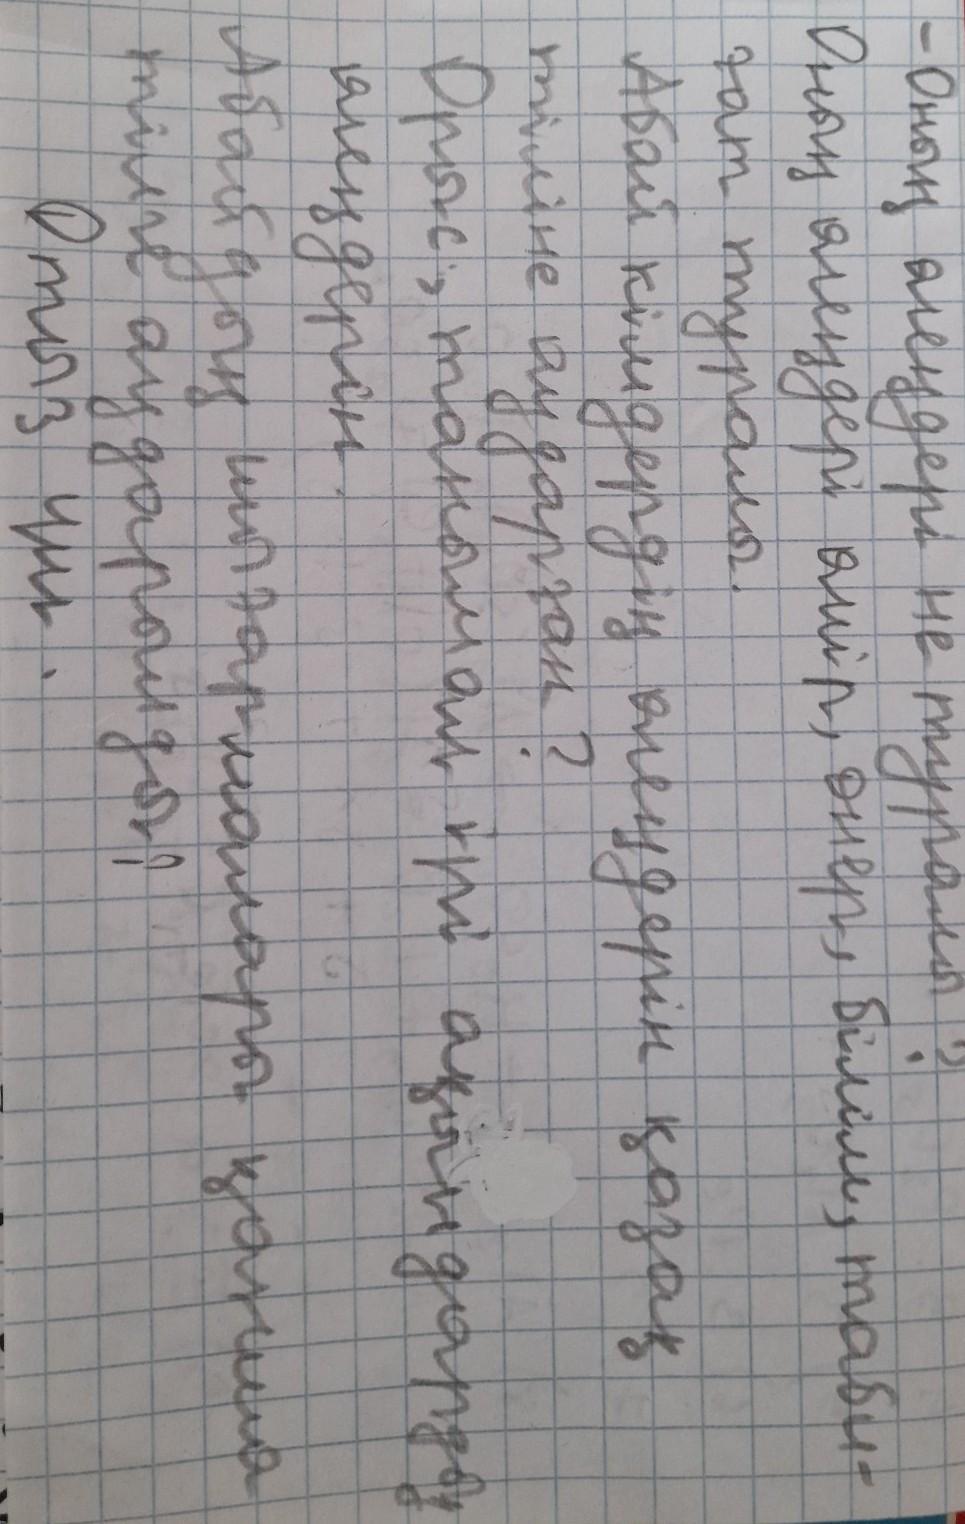 - Оның өлеңдері не туралы?
Оның өлеңдері өмір, өнер, білім, табы-
ғат туралы.
Абай кімдердің өлеңдерін қазақ
тіліне аударған?
Орыс, танымал ақындардың
өлеңдерін.
Абайдың шығармалары қанша
тілге аударылды?
Отыз үш.